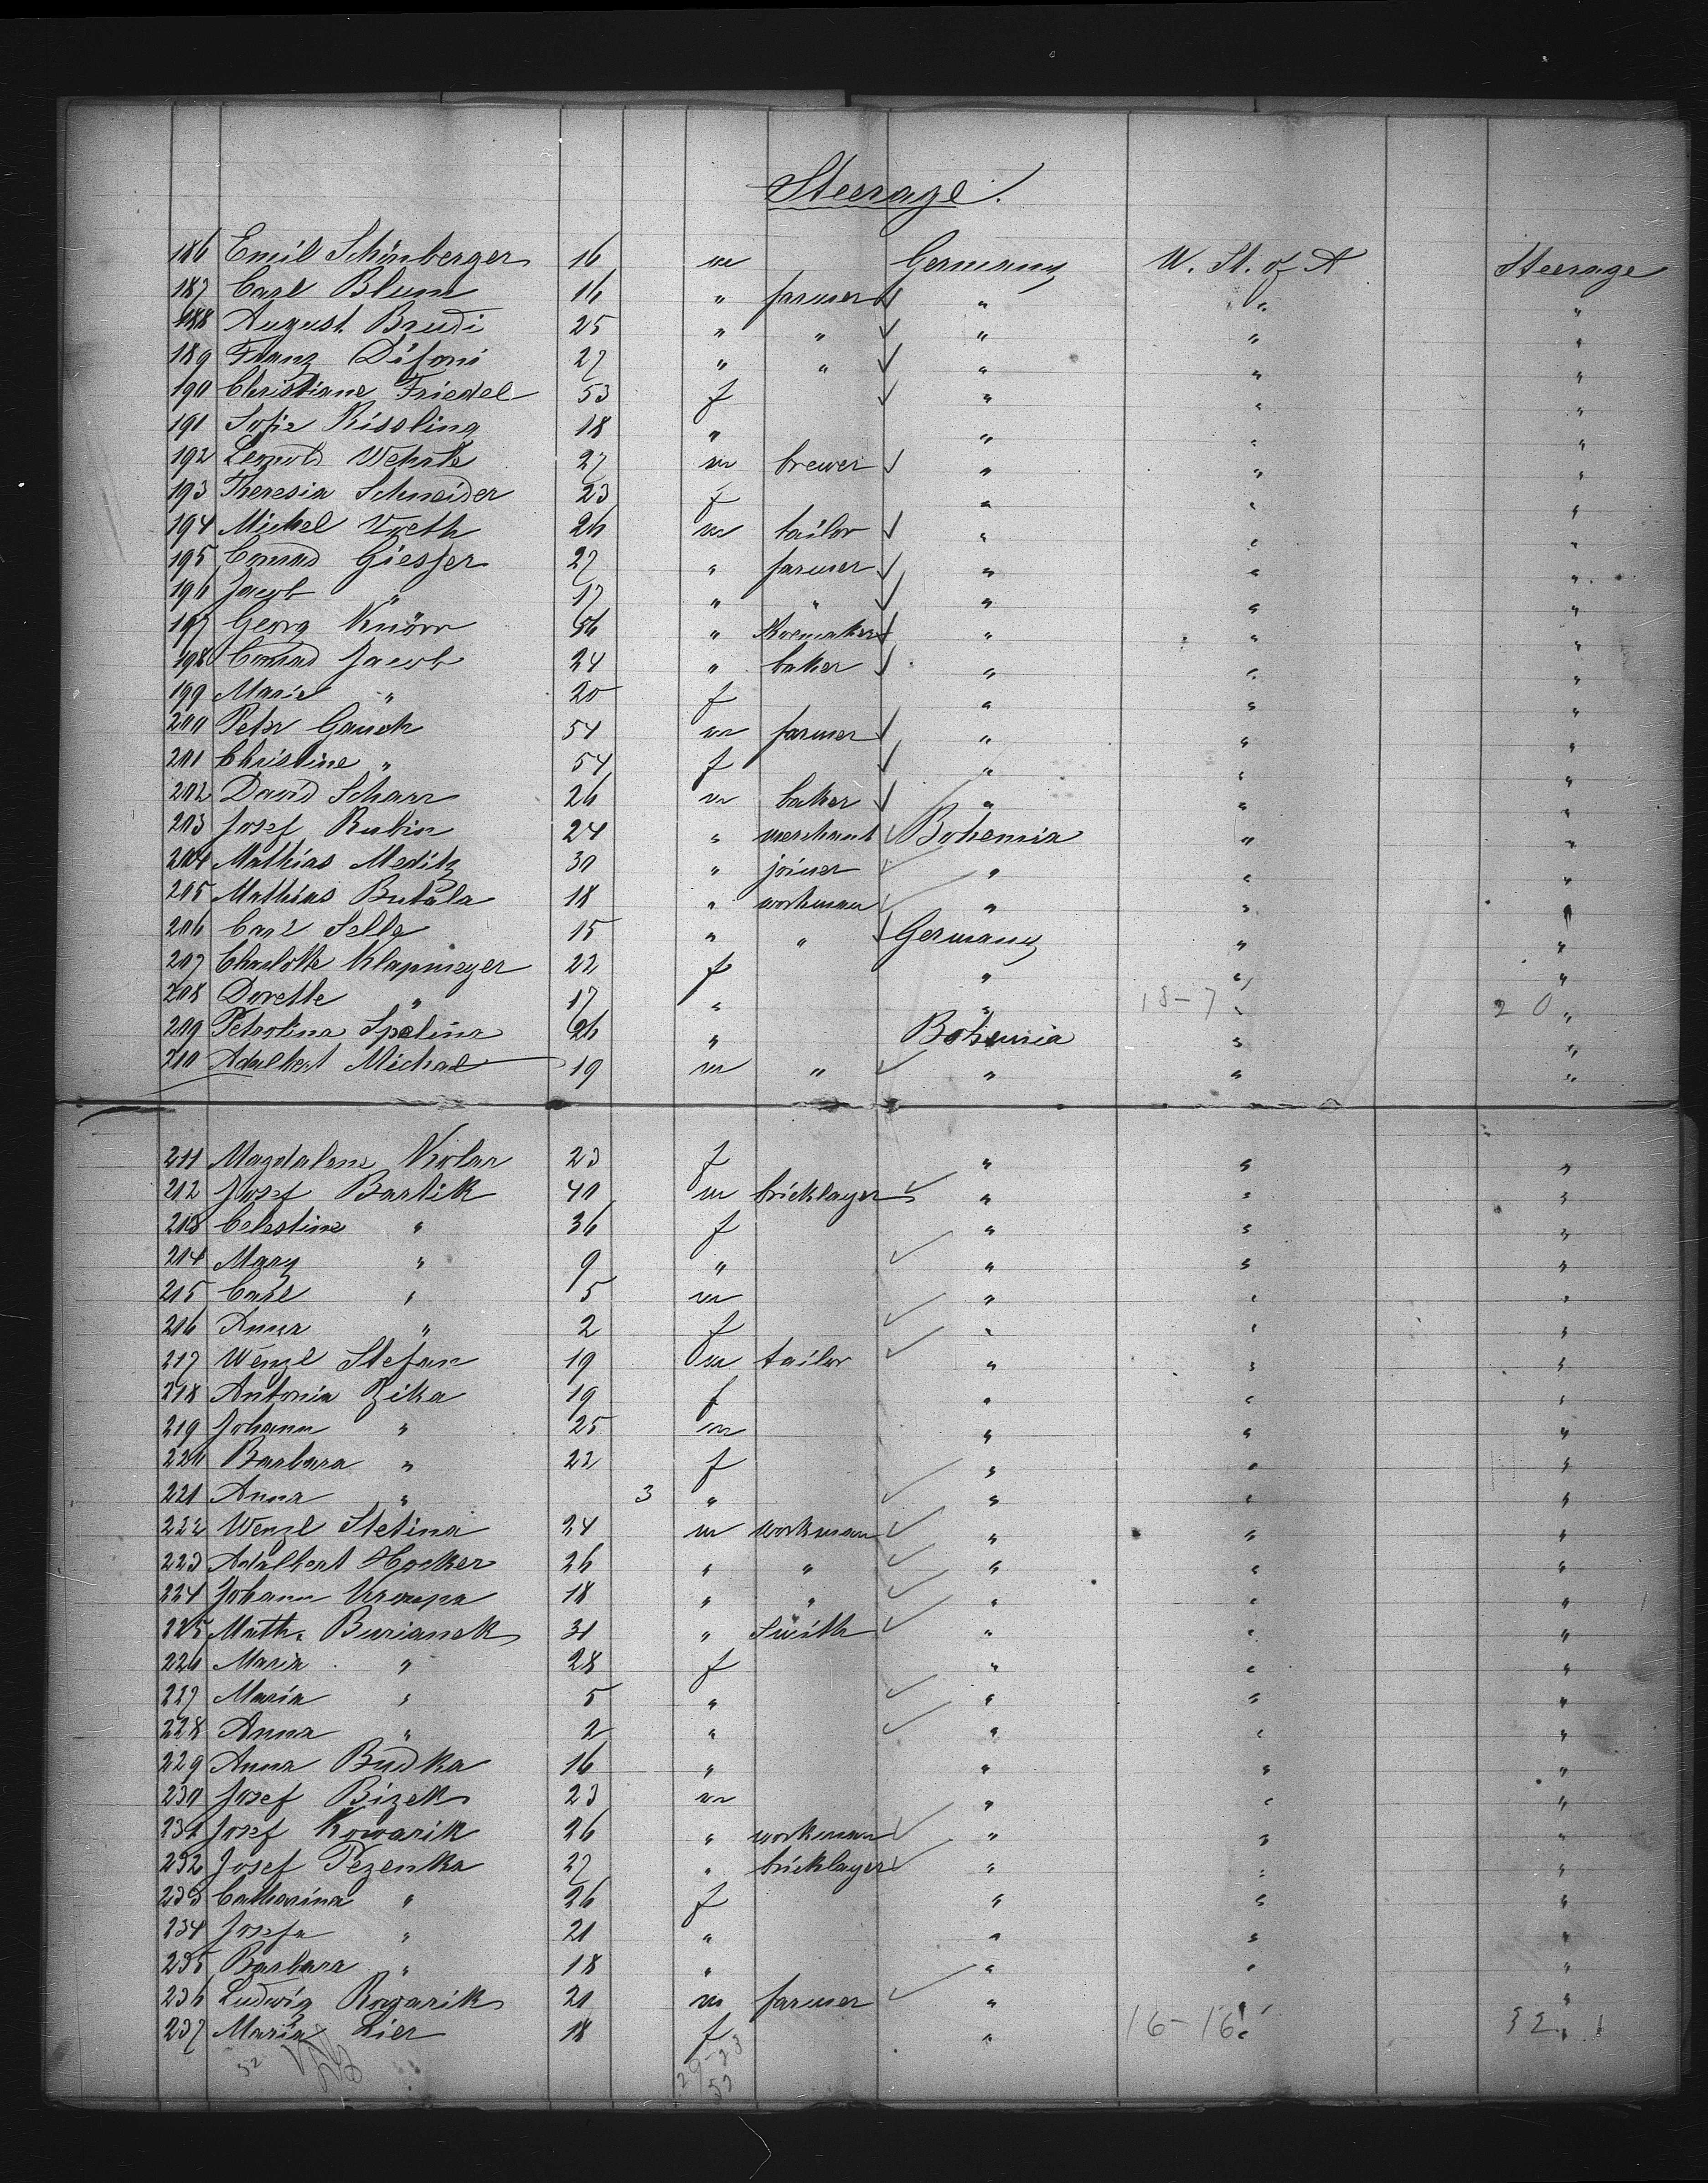 Steerage.
186 Emil Schönberger 16 m Germany U. St. of A Steerage
187 Carl Blum 16 " farmer " " "
188 August Brudi 25 " " " " "
189 Franz Difoni 27 " " " " "
190 Christiane Friedel 53 f " " "
191 Sofie Kissling 18 " " " "
192 Leopold Wehrle 27 m brewer " " "
193 Theresia Schneider 23 f " " "
194 Michel Voeth 26 m tailor " " "
195 Conrad Giesser 27 " farmer " " "
196 Jacob " 17 " " " " "
197 Georg Knörr 56 " Shoemaker " " "
198 Conrad Jacob 24 " baker " " "
199 Marie " 20 f " " "
200 Peter Gauch 54 m farmer " " "
201 Christine " 54 f " " "
202 David Scharr 26 m baker " " "
203 Josef Rubin 24 " merchant Bohemia " "
204 Mathias Meditz 30 " joiner " " "
205 Mathias Butala 18 " workman " " "
206 Carl Selle 15 " " Germany " "
207 Charlotte Klapmeyer 22 f " " "
208 Dorette " 17 " " 18-7 " 20 "
209 Petrolina Spelina 26 " Bohemia " "
210 Adalbert Michal 19 m " " " "
211 Magdalena Kolar 23 f " " "
212 Josef Bartik 40 m bricklayer " " "
213 Celestine " 36 f " " "
214 Mary " 9 " " " "
215 Carl " 5 m " " "
216 Anna " 2 f " " "
217 Wenzl Stefan 19 m tailor " " "
218 Antonia Zika 19 f " " "
219 Johann " 25 m " " "
220 Barbara " 22 f " " "
221 Anna " 3 " " " "
222 Wenzl Stetina 24 m workman " " "
223 Adalbert Hocker 26 " " " " "
224 Johann Kroupa 18 " " " " "
225 Math. Burianek 31 " Smith " " "
226 Maria " 28 f " " "
227 Maria " 5 " " " "
228 Anna " 2 " " " "
229 Anna Budka 16 " " " "
230 Josef Bizek 23 m " " "
231 Josef Kowarik 26 " workman " " "
232 Josef Pezenka 27 " bricklayer " " "
233 Catharina " 26 f " " "
234 Josefa " 21 " " " "
235 Barbara " 18 " " " "
236 Ludwig Kowarik 21 m farmer " " "
237 Maria Lier 18 f " 16-16 " 32 "
52 29-23
52